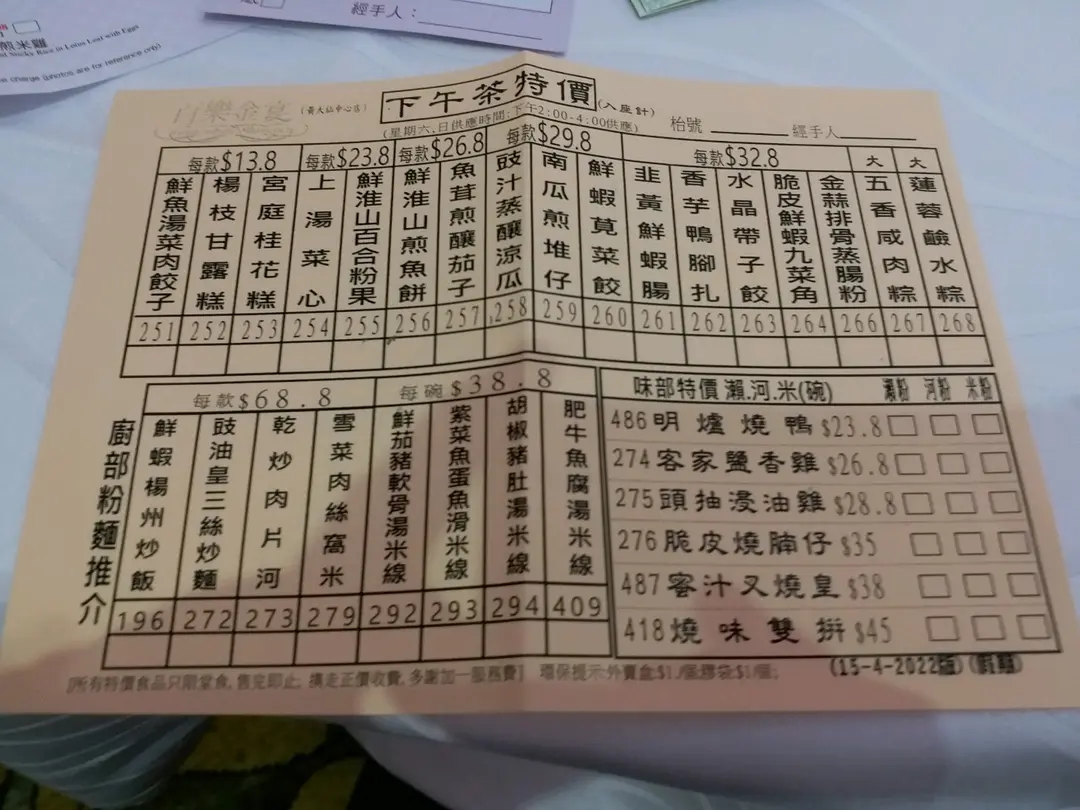 經手人：
煎米雞
st Sticky Rice in Lotus Leaf with Eggs
e charge (photos are for reference only)
百樂金宴 (黃大仙中心店) 下午茶特價 (入座計)
(星期六,日供應時間:下午2:00-4:00供應) 枱號 經手人
每款$13.8 每款$23.8 每款$26.8 每款$29.8 每款$32.8 大 大
鮮魚湯菜肉餃子 251
楊枝甘露糕 252
宮庭桂花糕 253
上湯菜心 254
鮮淮山百合粉果 255
鮮淮山煎魚餅 256
魚茸煎釀茄子 257
豉汁蒸釀涼瓜 258
南瓜煎堆仔 259
鮮蝦莧菜餃 260
韭黃鮮蝦腸 261
香芋鴨腳扎 262
水晶帶子餃 263
脆皮鮮蝦九菜角 264
金蒜排骨蒸腸粉 266
五香咸肉粽 267
蓮蓉鹼水粽 268
廚部粉麵推介
每款$68.8 每碗$38.8
鮮蝦楊州炒飯 196
豉油皇三絲炒麵 272
乾炒肉片河 273
雪菜肉絲窩米 279
鮮茄豬軟骨湯米線 292
紫菜魚蛋魚滑米線 293
胡椒豬肚湯米線 294
肥牛魚腐湯米線 409
味部特價 瀨.河.米(碗) 瀨粉 河粉 米粉
486明爐燒鴨$23.8
274客家鹽香雞$26.8
275頭抽浸油雞$28.8
276脆皮燒腩仔$35
487蜜汁叉燒皇$38
418燒味雙拼$45
[所有特價食品只限堂食,售完即止,擕走正價收費,多謝加一服務費] 環保提示:外賣盒$1./個膠袋$1/個;
(15-4-2022版)